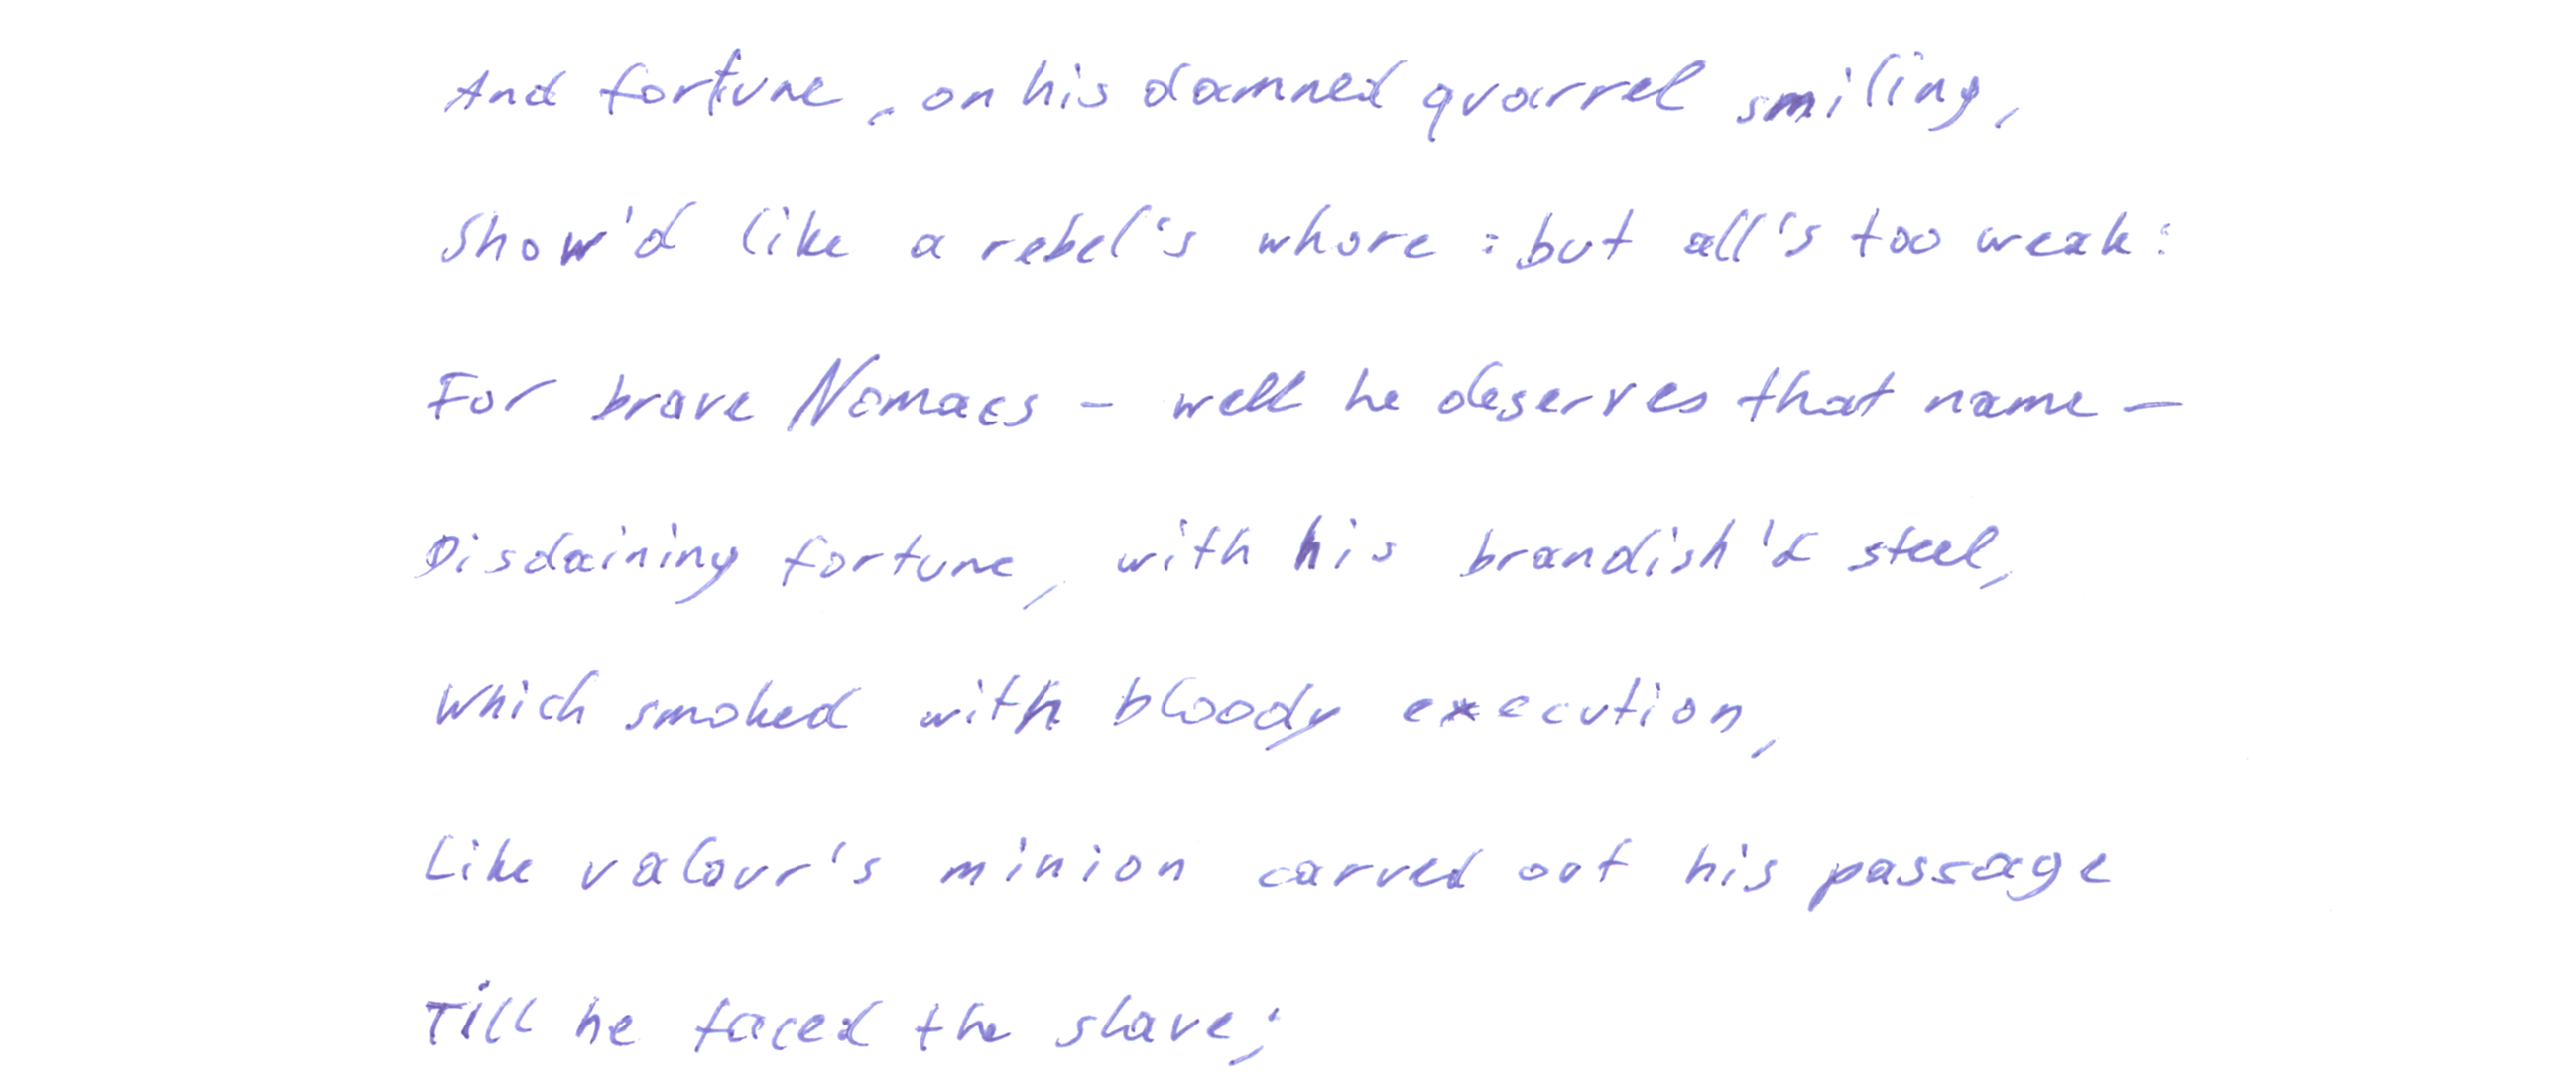 And fortune, on his damned quarrel smiling,
Show'd like a rebel's whore : but all's too weak :
For brave Nomaes - well he deserves that name -
Disdaining fortune, with his brandish'd steel,
Which smoked with bloody execution,
Like valour's minion carved out his passage
Till he faced the slave;